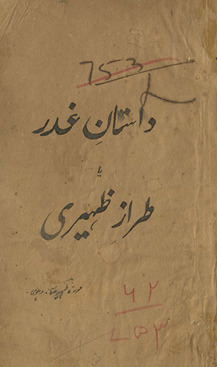 753
داستانِ غدر
یا
طرازِ ظہیری
۶۲
۷۵۳